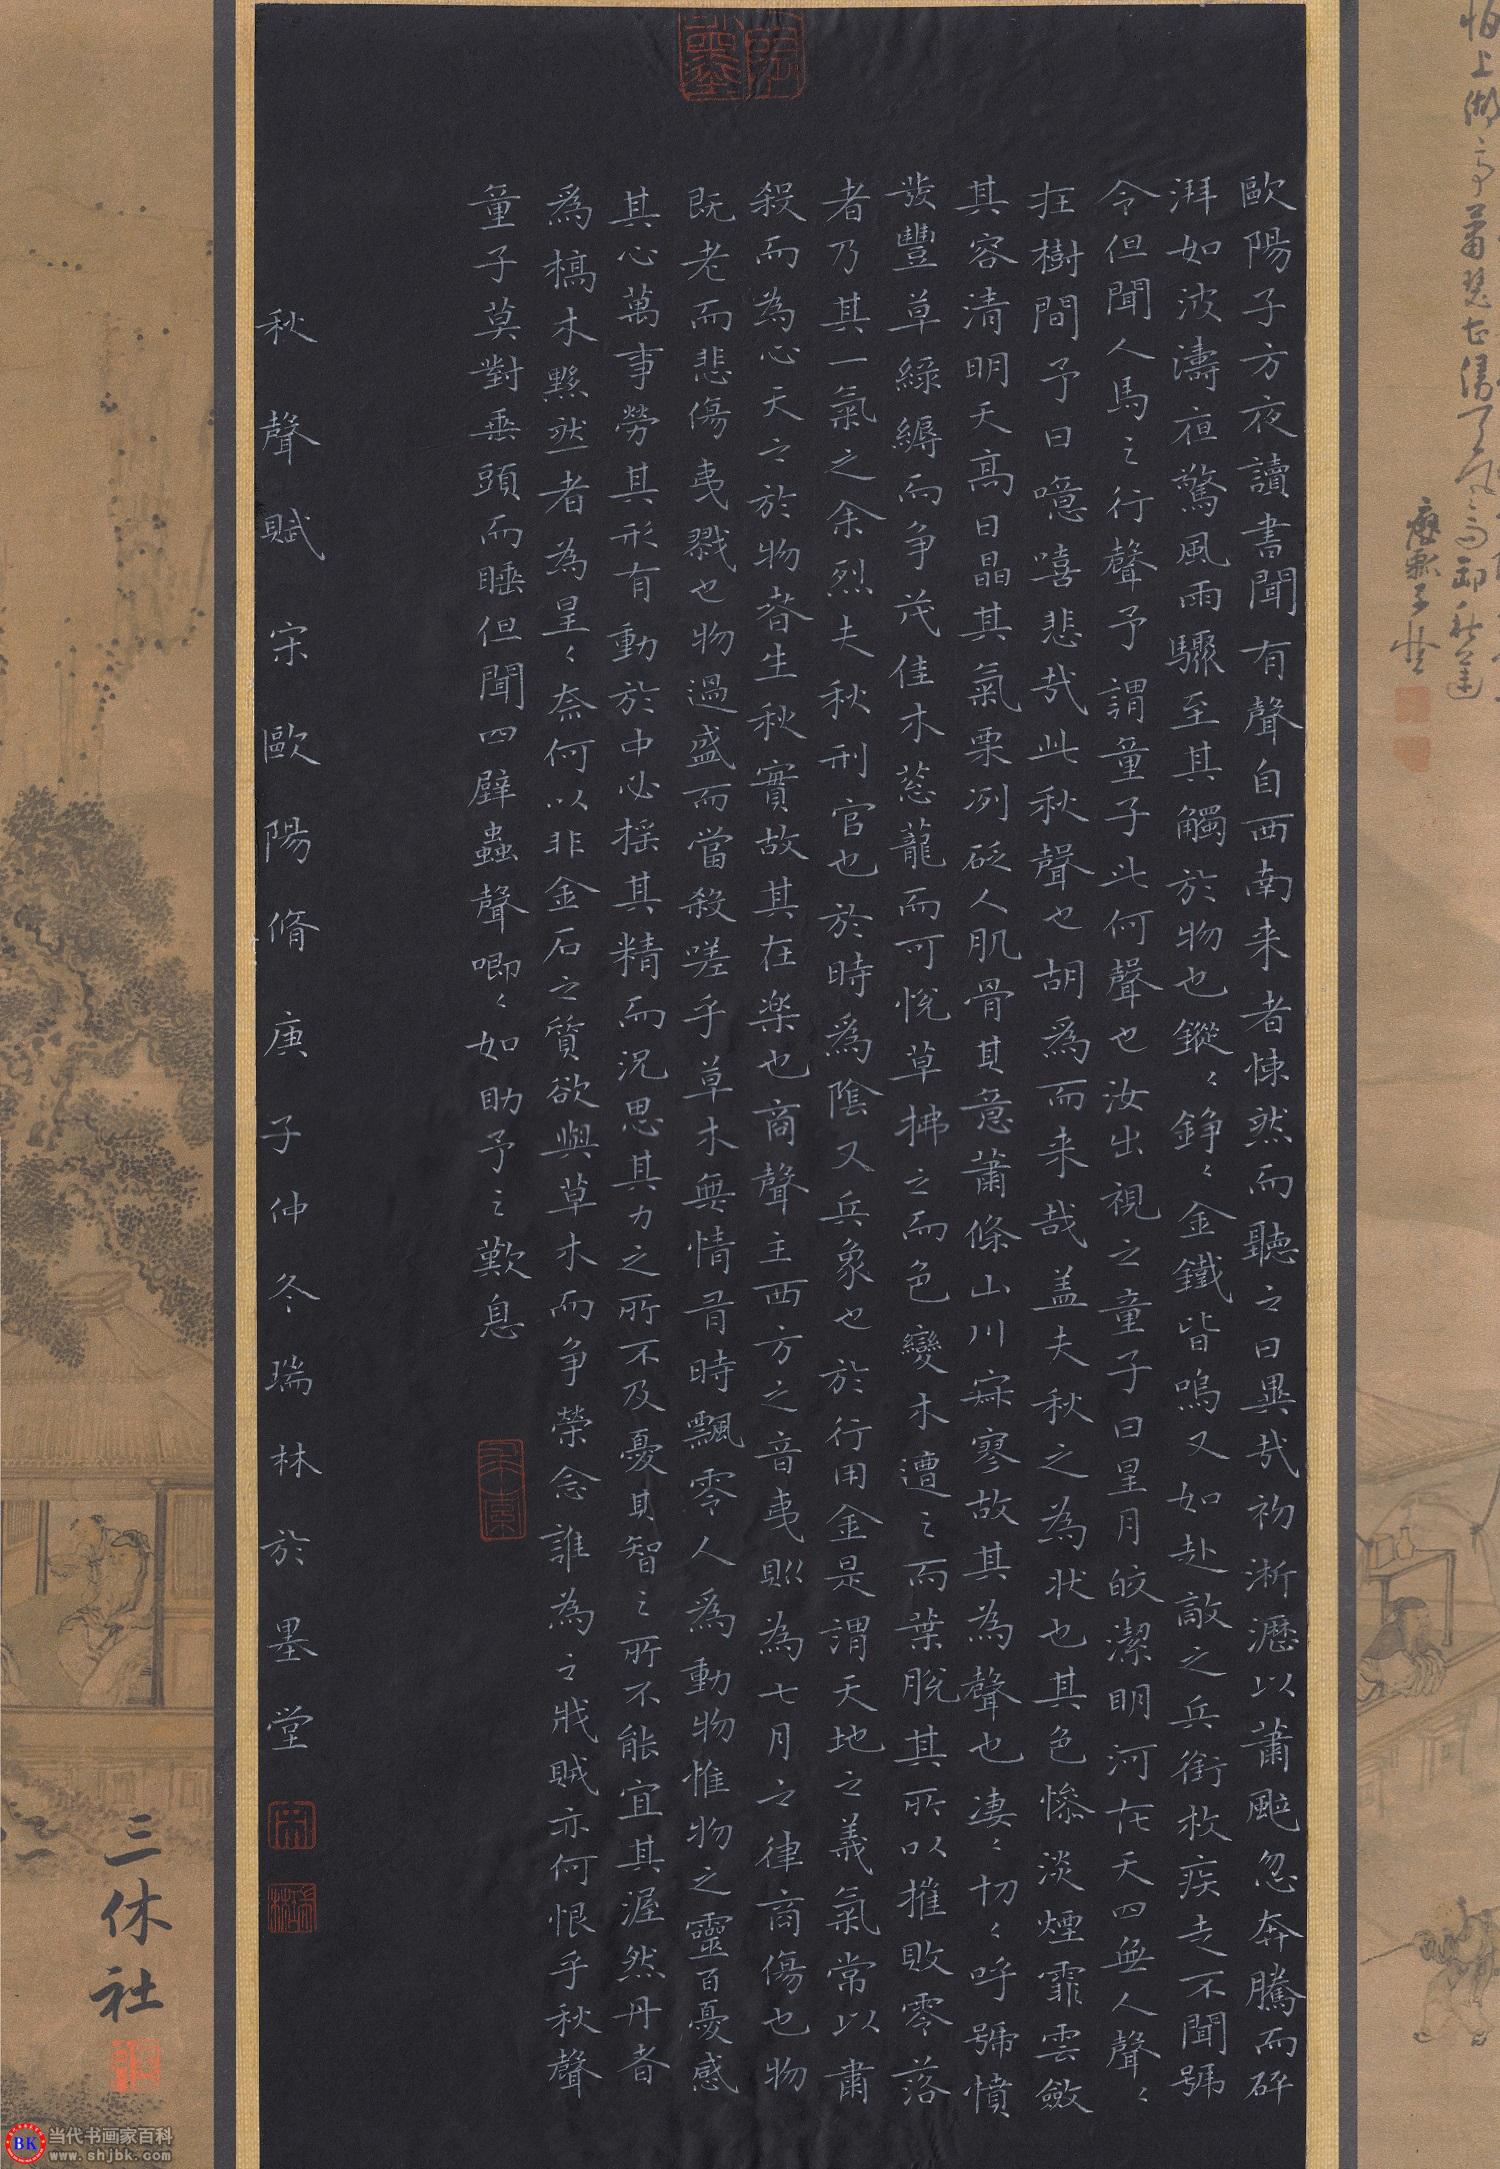 歐陽子方夜讀書聞有聲自西南来者悚然而聽之曰異哉初淅瀝以蕭颯忽奔騰而砰
湃如波濤夜驚風雨驟至其觸於物也鏦〻錚〻金鐵皆鳴又如赴敵之兵銜枚疾走不聞號
令但聞人馬之行聲予謂童子此何聲也汝出視之童子曰星月皎潔明河在天四無人聲〻
在樹間予曰噫嘻悲哉此秋聲也胡爲而来哉盖夫秋之為状也其色惨淡煙霏雲斂
其容清明天高日晶其氣栗冽砭人肌骨其意蕭條山川寂寥故其為聲也凄〻切〻呼號憤
發豐草綠縟而争茂佳木葱蘢而可悅草拂之而色變木遭之而葉脫其所以摧敗零落
者乃其一氣之余烈夫秋刑官也於時爲陰又兵象也於行用金是謂天地之義氣常以肅
殺而為心天之於物春生秋實故其在楽也商聲主西方之音夷則為七月之律商傷也物
既老而悲傷夷戮也物過盛而當殺嗟乎草木無情有時飄零人爲動物惟物之靈百憂感
其心萬事勞其形有動於中必揺其精而况思其力之所不及憂其智之所不能宜其渥然丹者
爲槁木黟然者為星〻奈何以非金石之質欲與草木而争榮念誰為之戕賊亦何恨乎秋聲
童子莫對垂頭而睡但聞四壁蟲聲唧〻如助予之歎息
秋聲賦宋歐陽脩庚子仲冬瑞林於墨堂
三休社
當代书画家百科
www.shjbk.com
BK